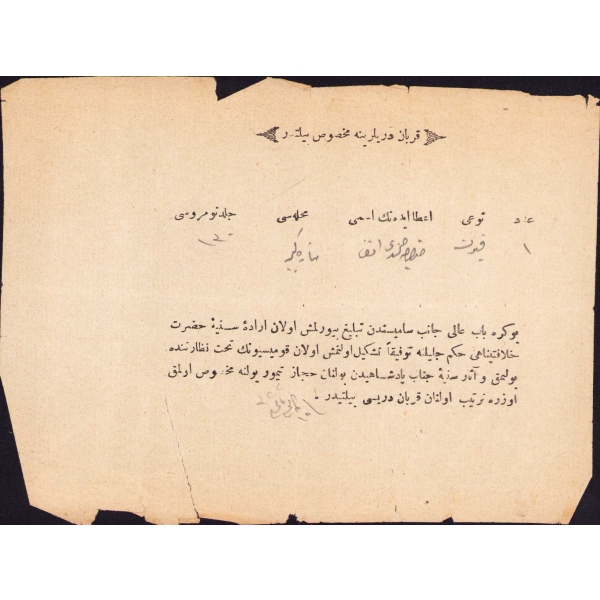 قربان دریلرینه مخصوص بیلتدر
عدد نوعی اعطا ایده‌نك اسمی محله‌سی جلد نومروسی
١
بوكره باب عالی جانب سامیسندن تبلیغ بیورلمش اولان ارادۀ سنیۀ حضرت
خلافتپناهی حكم جلیلنه توفیقاً تشكیل اولنمش اولان قومیسیونك تحت نظارتنده
بولنمق و آثار سنیۀ جناب پادشاهیدن بولنان حجاز تیمور یولنه مخصوص اولمق
اوزره ترتیب اولنان قربان دریسی بیلتیدر .